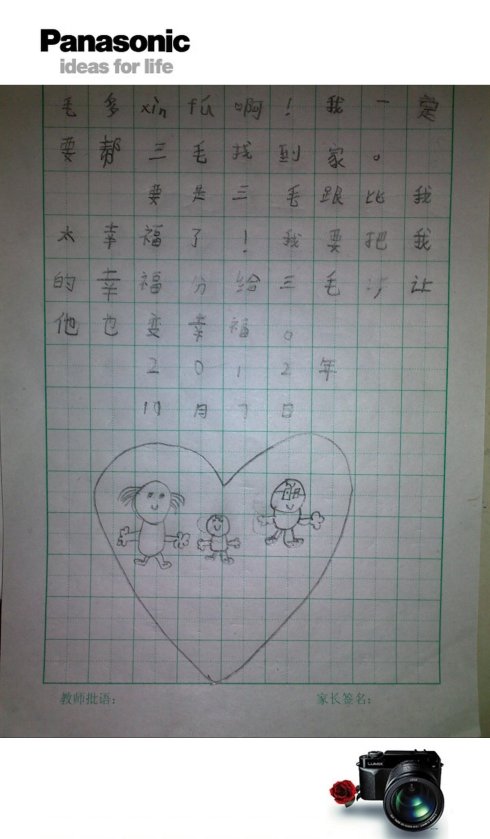 Panasonic
ideas for life
毛多xìn fú啊！我一定
要帮三毛找到家。
要是三毛跟比我
太幸福了！我要把我
的幸福分给三毛 让
他也变幸福。
2012年
10月7日
教师批语：
家长签名：
LUMIX